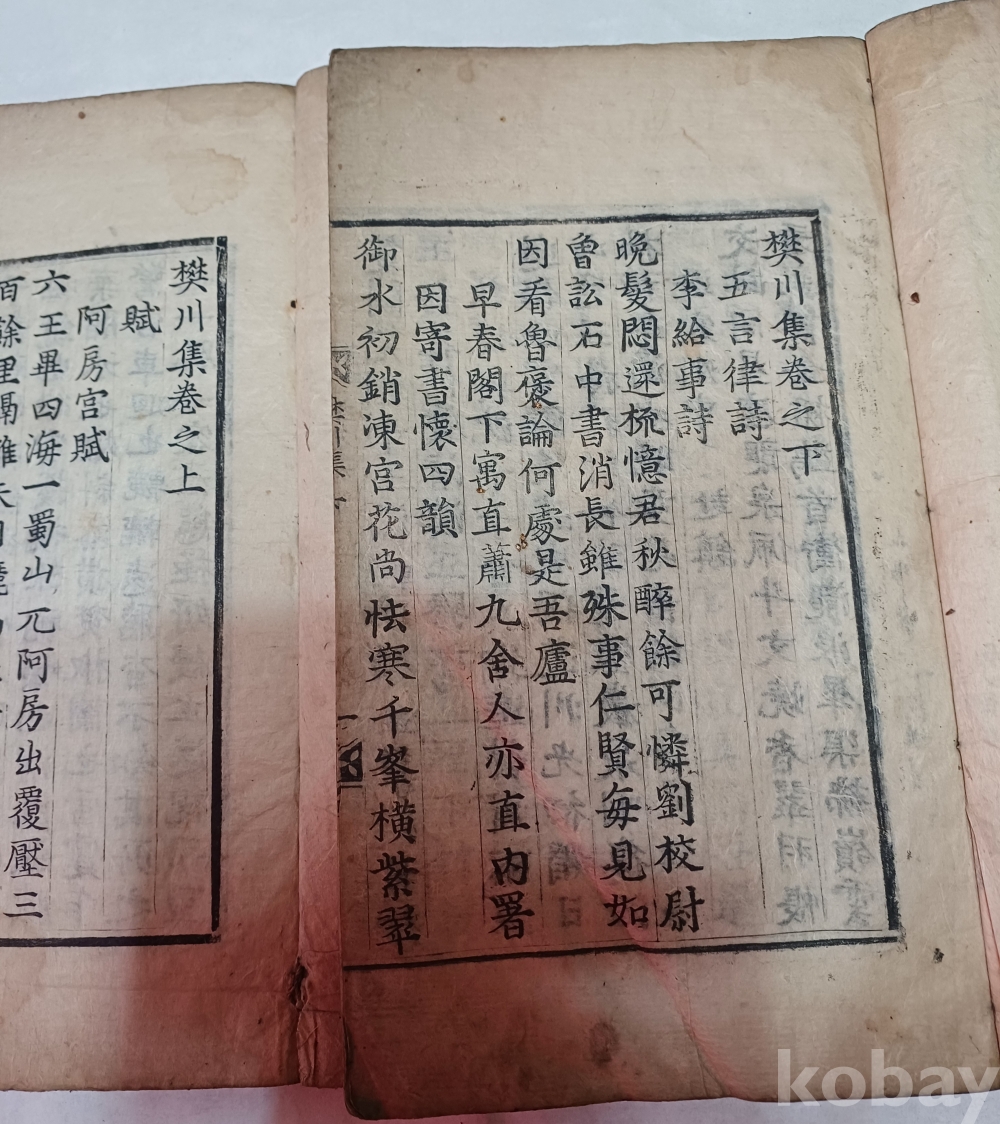 樊川集卷之下
五言律詩
李給事詩
晩髮悶還梳憶君秋醉餘可憐劉校尉
曾訟石中書消長雖殊事仁賢每見如
因看魯褒論何處是吾廬
早春閣下寓直蕭九舍人亦直內署
因寄書懷四韻
御水初銷凍宮花尚怯寒千峯橫紫翠
樊川集
樊川集卷之上
賦
阿房宮賦
六王畢四海一蜀山兀阿房出覆壓三
百餘里隔離天日驪
kobay